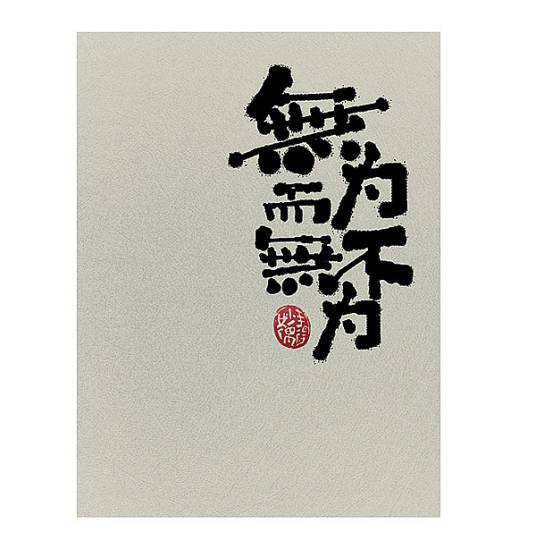 無为
而
無不
为